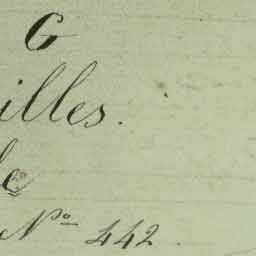 G
illes.
le
Nº 442.